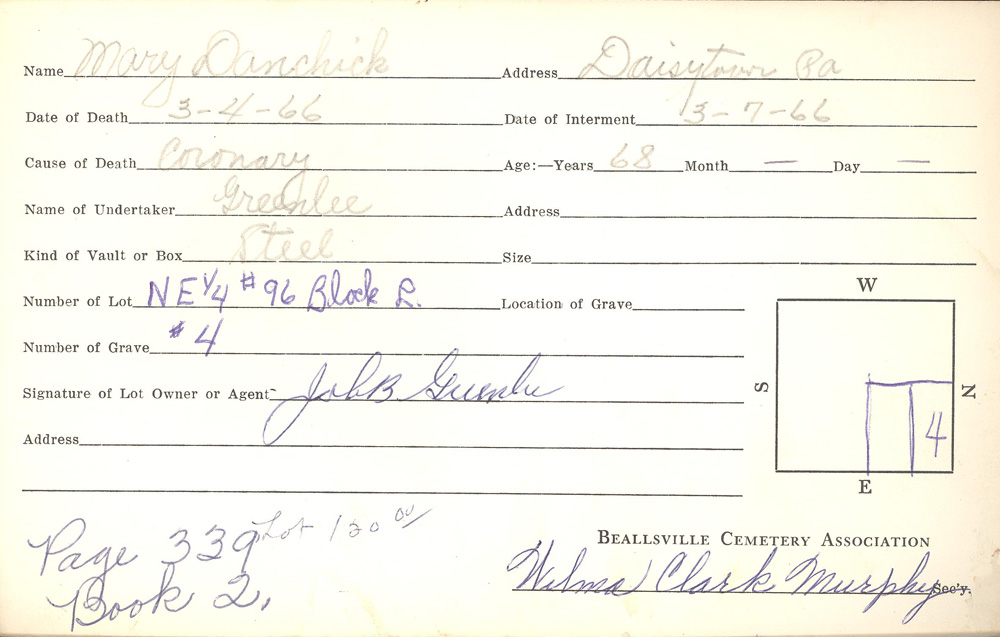 Name Mary Danchick Address Daisytown Pa
Date of Death 3-4-66 Date of Interment 3-7-66
Cause of Death Coronary Age:—Years 68 Month — Day —
Name of Undertaker Greenlee Address
Kind of Vault or Box Steel Size
Number of Lot NE 1/4 #96 Block L. Location of Grave
Number of Grave #4
Signature of Lot Owner or Agent John B Greenlee
Address
W
S
N
4
E
Page 339 Lot 130 00/
Book 2.
BEALLSVILLE CEMETERY ASSOCIATION
Wilma Clark Murphy Sec'y.